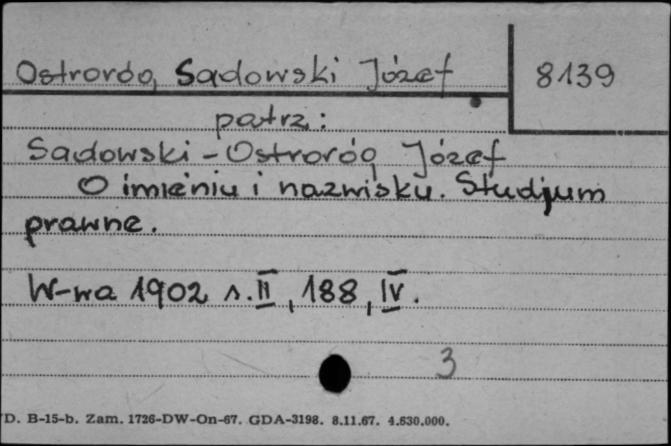 Ostroróg, Sadowski Józef 8139
patrz:
Sadowski-Ostroróg Józef
O imieniu i nazwisku. Studjum
prawne.
W-wa 1902 s. II, 188, IV.
3
D. B-15-b. Zam. 1726-DW-On-67. GDA-3198. 8.11.67. 4.630.000.